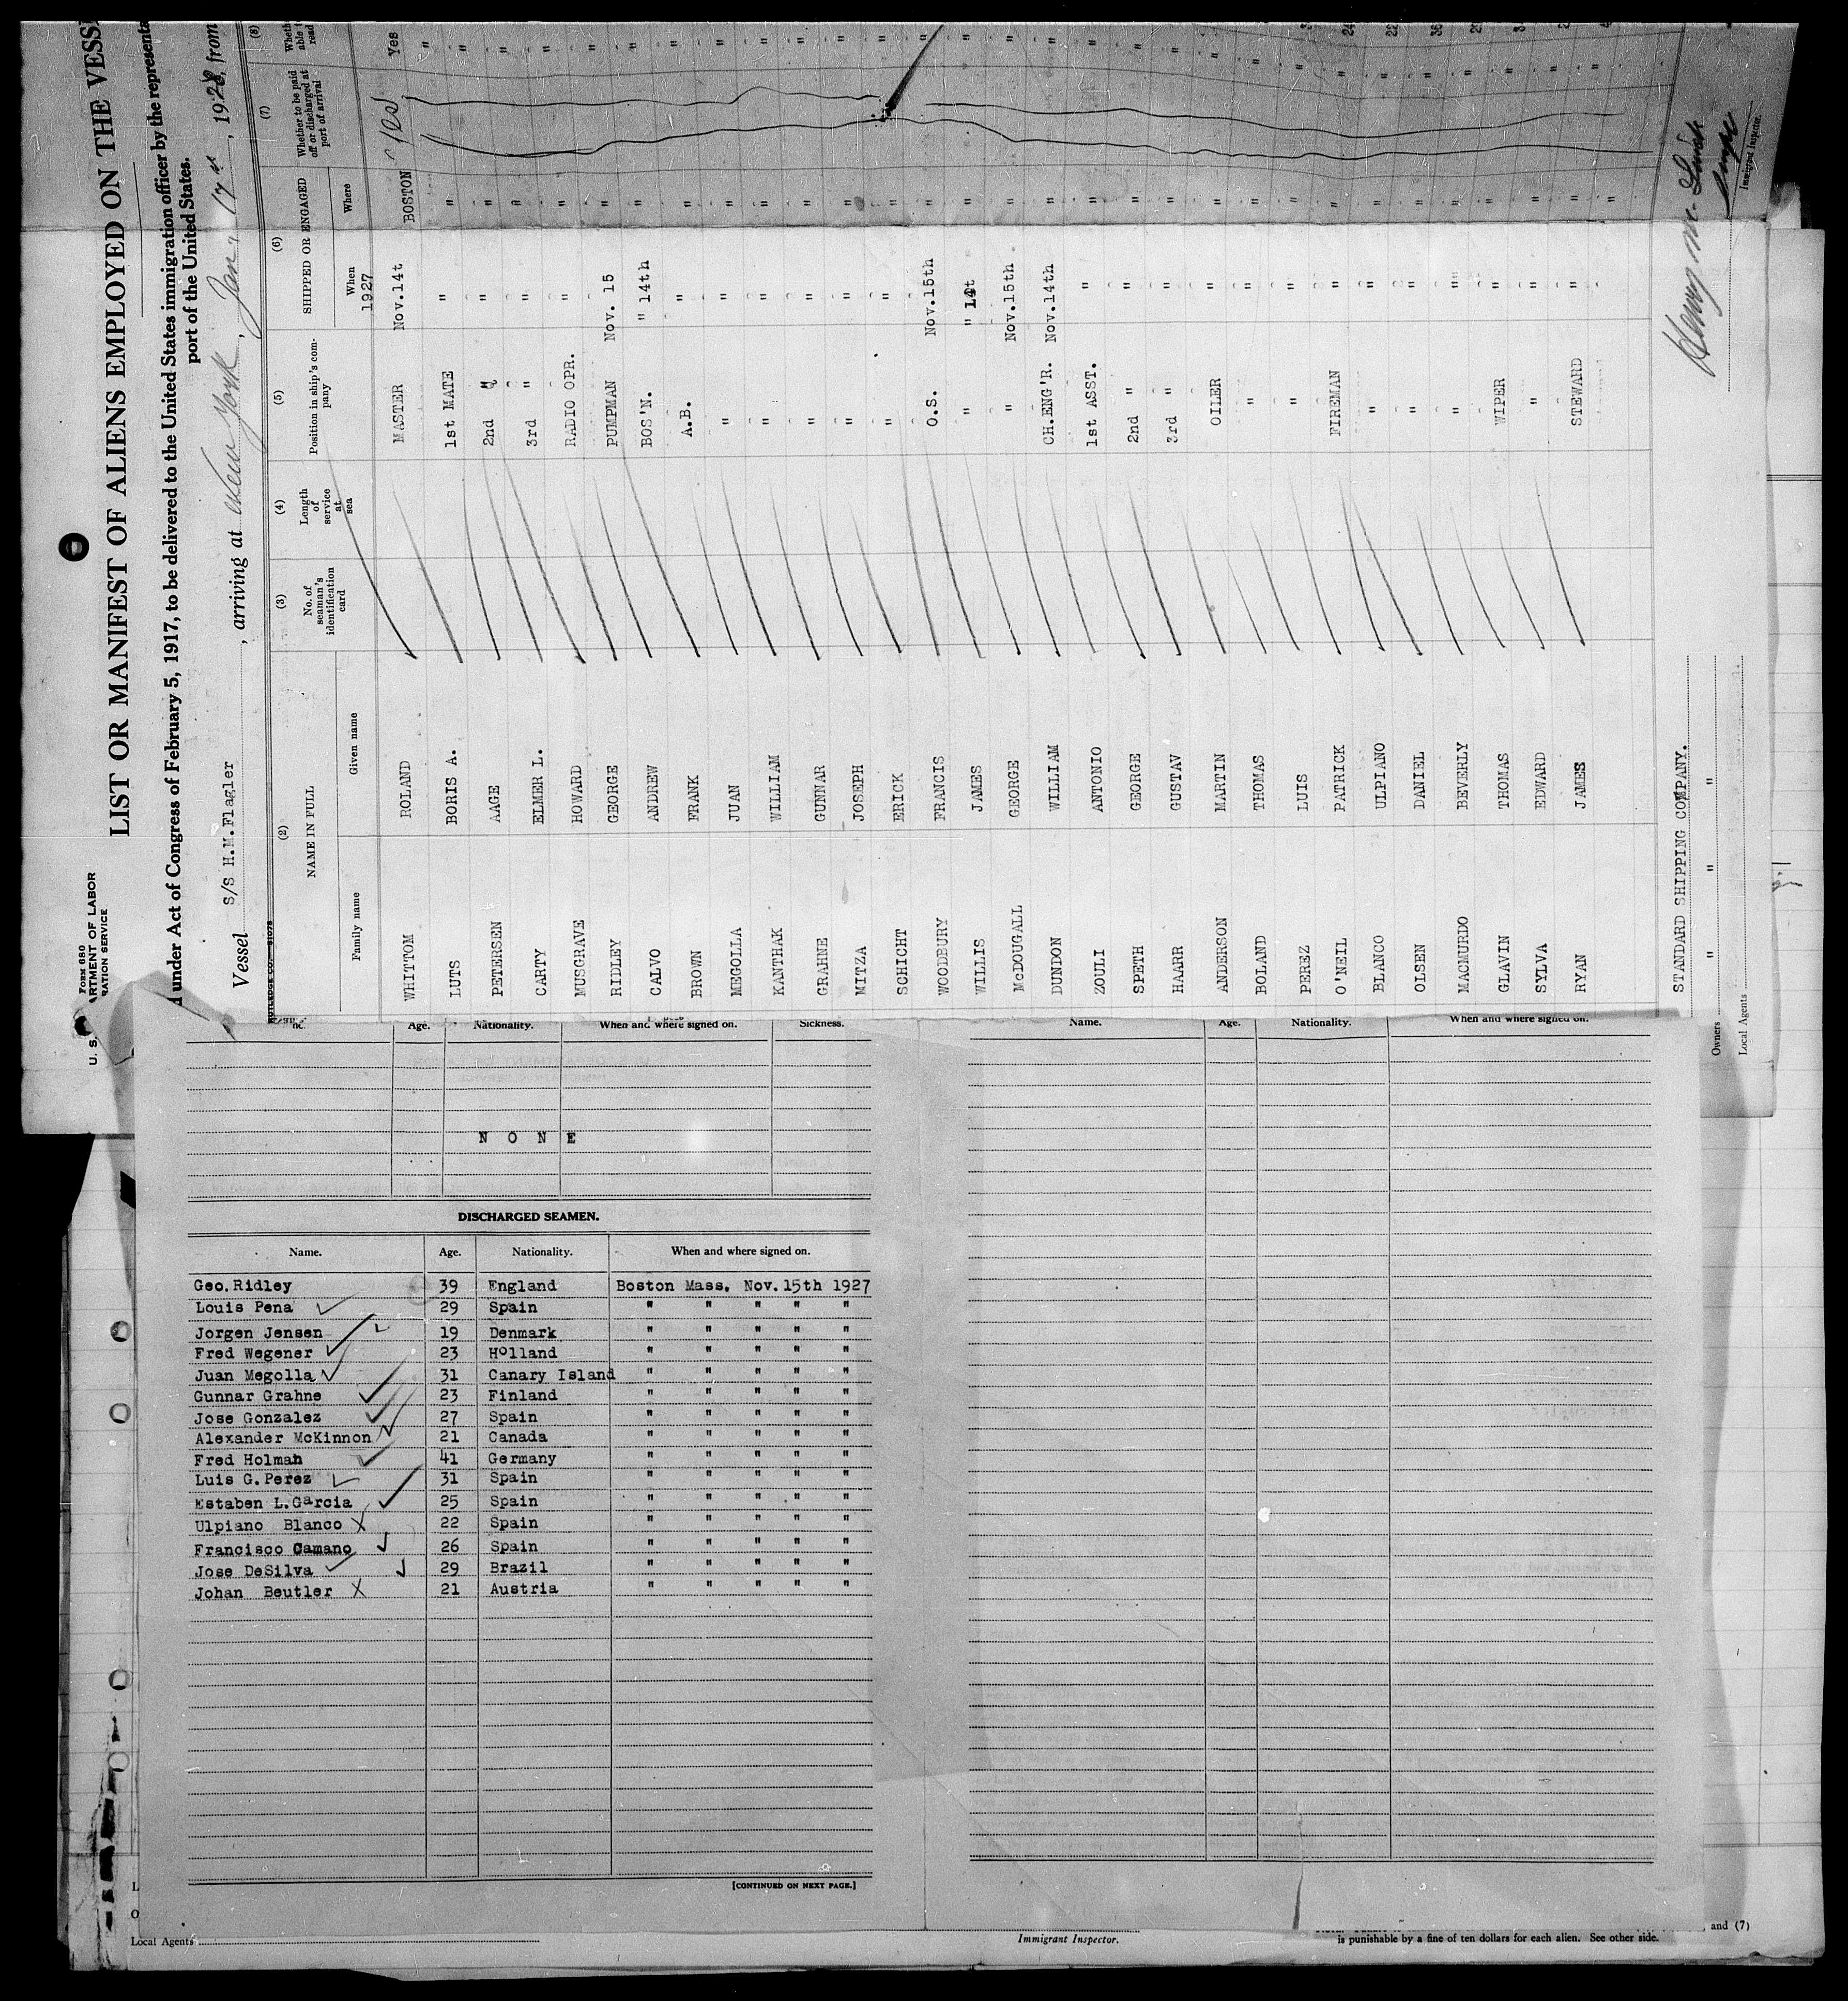 Form 680
U. S. DEPARTMENT OF LABOR
IMMIGRATION SERVICE
LIST OR MANIFEST OF ALIENS EMPLOYED ON THE VESS
d under Act of Congress of February 5, 1917, to be delivered to the United States immigration officer by the representa
port of the United States.
Vessel S/S H.M.Flagler, arriving at New York, Jan. 17th, 1928, from
(2) (3) (4) (5) (6) (7) (8)
NAME IN FULL No. of seaman's identification card Length of service at sea Position in ship's company SHIPPED OR ENGAGED Whether to be paid off or discharged at port of arrival Whether able to read
Family name Given name When Where
1927
WHITTOM ROLAND MASTER Nov.14t BOSTON Yes Yes
LUTS BORIS A. 1st MATE " " "
PETERSEN AAGE 2nd " " " "
CARTY ELMER L. 3rd " " " "
MUSGRAVE HOWARD RADIO OPR. " " "
RIDLEY GEORGE PUMPMAN Nov. 15 " "
CALVO ANDREW BOS'N. " 14th " "
BROWN FRANK A.B. " " "
MEGOLLA JUAN " " " "
KANTHAK WILLIAM " " " "
GRAHNE GUNNAR " " " "
MITZA JOSEPH " " " "
SCHICHT ERICK " " " "
WOODBURY FRANCIS O.S. Nov.15th " "
WILLIS JAMES " " 14t " "
McDOUGALL GEORGE " Nov.15th " "
DUNDON WILLIAM CH.ENG'R. Nov.14th " "
ZOULI ANTONIO 1st ASST. " " "
SPETH GEORGE 2nd " " " "
HAARR GUSTAV 3rd " " " "
ANDERSON MARTIN OILER " " "
BOLAND THOMAS " " " "
PEREZ LUIS " " " "
O'NEIL PATRICK FIREMAN " " "
BLANCO ULPIANO " " " "
OLSEN DANIEL " " " "
MACMURDO BEVERLY " " " "
GLAVIN THOMAS WIPER " " "
SYLVA EDWARD " " " "
RYAN JAMES STEWARD " " "
STANDARD SHIPPING COMPANY.
Owners " " "
Local Agents
Immigrant Inspector.
Age. Nationality. When and where signed on. Sickness.
NONE
DISCHARGED SEAMEN.
Name. Age. Nationality. When and where signed on.
Geo. Ridley 39 England Boston Mass. Nov. 15th 1927
Louis Pena 29 Spain " " " " "
Jorgen Jensen 19 Denmark " " " " "
Fred Wegener 23 Holland " " " " "
Juan Megolla 31 Canary Island " " " " "
Gunnar Grahne 23 Finland " " " " "
Jose Gonzalez 27 Spain " " " " "
Alexander McKinnon 21 Canada " " " " "
Fred Holman 41 Germany " " " " "
Luis G. Perez 31 Spain " " " " "
Estaben L. Garcia 25 Spain " " " " "
Ulpiano Blanco X 22 Spain " " " " "
Francisco Camano 26 Spain " " " " "
Jose DeSilva 29 Brazil " " " " "
Johan Beutler X 21 Austria " " " " "
[CONTINUED ON NEXT PAGE.]
Name. Age. Nationality. When and where signed on.
Local Agents
Immigrant Inspector.
and (7)
is punishable by a fine of ten dollars for each alien. See other side.